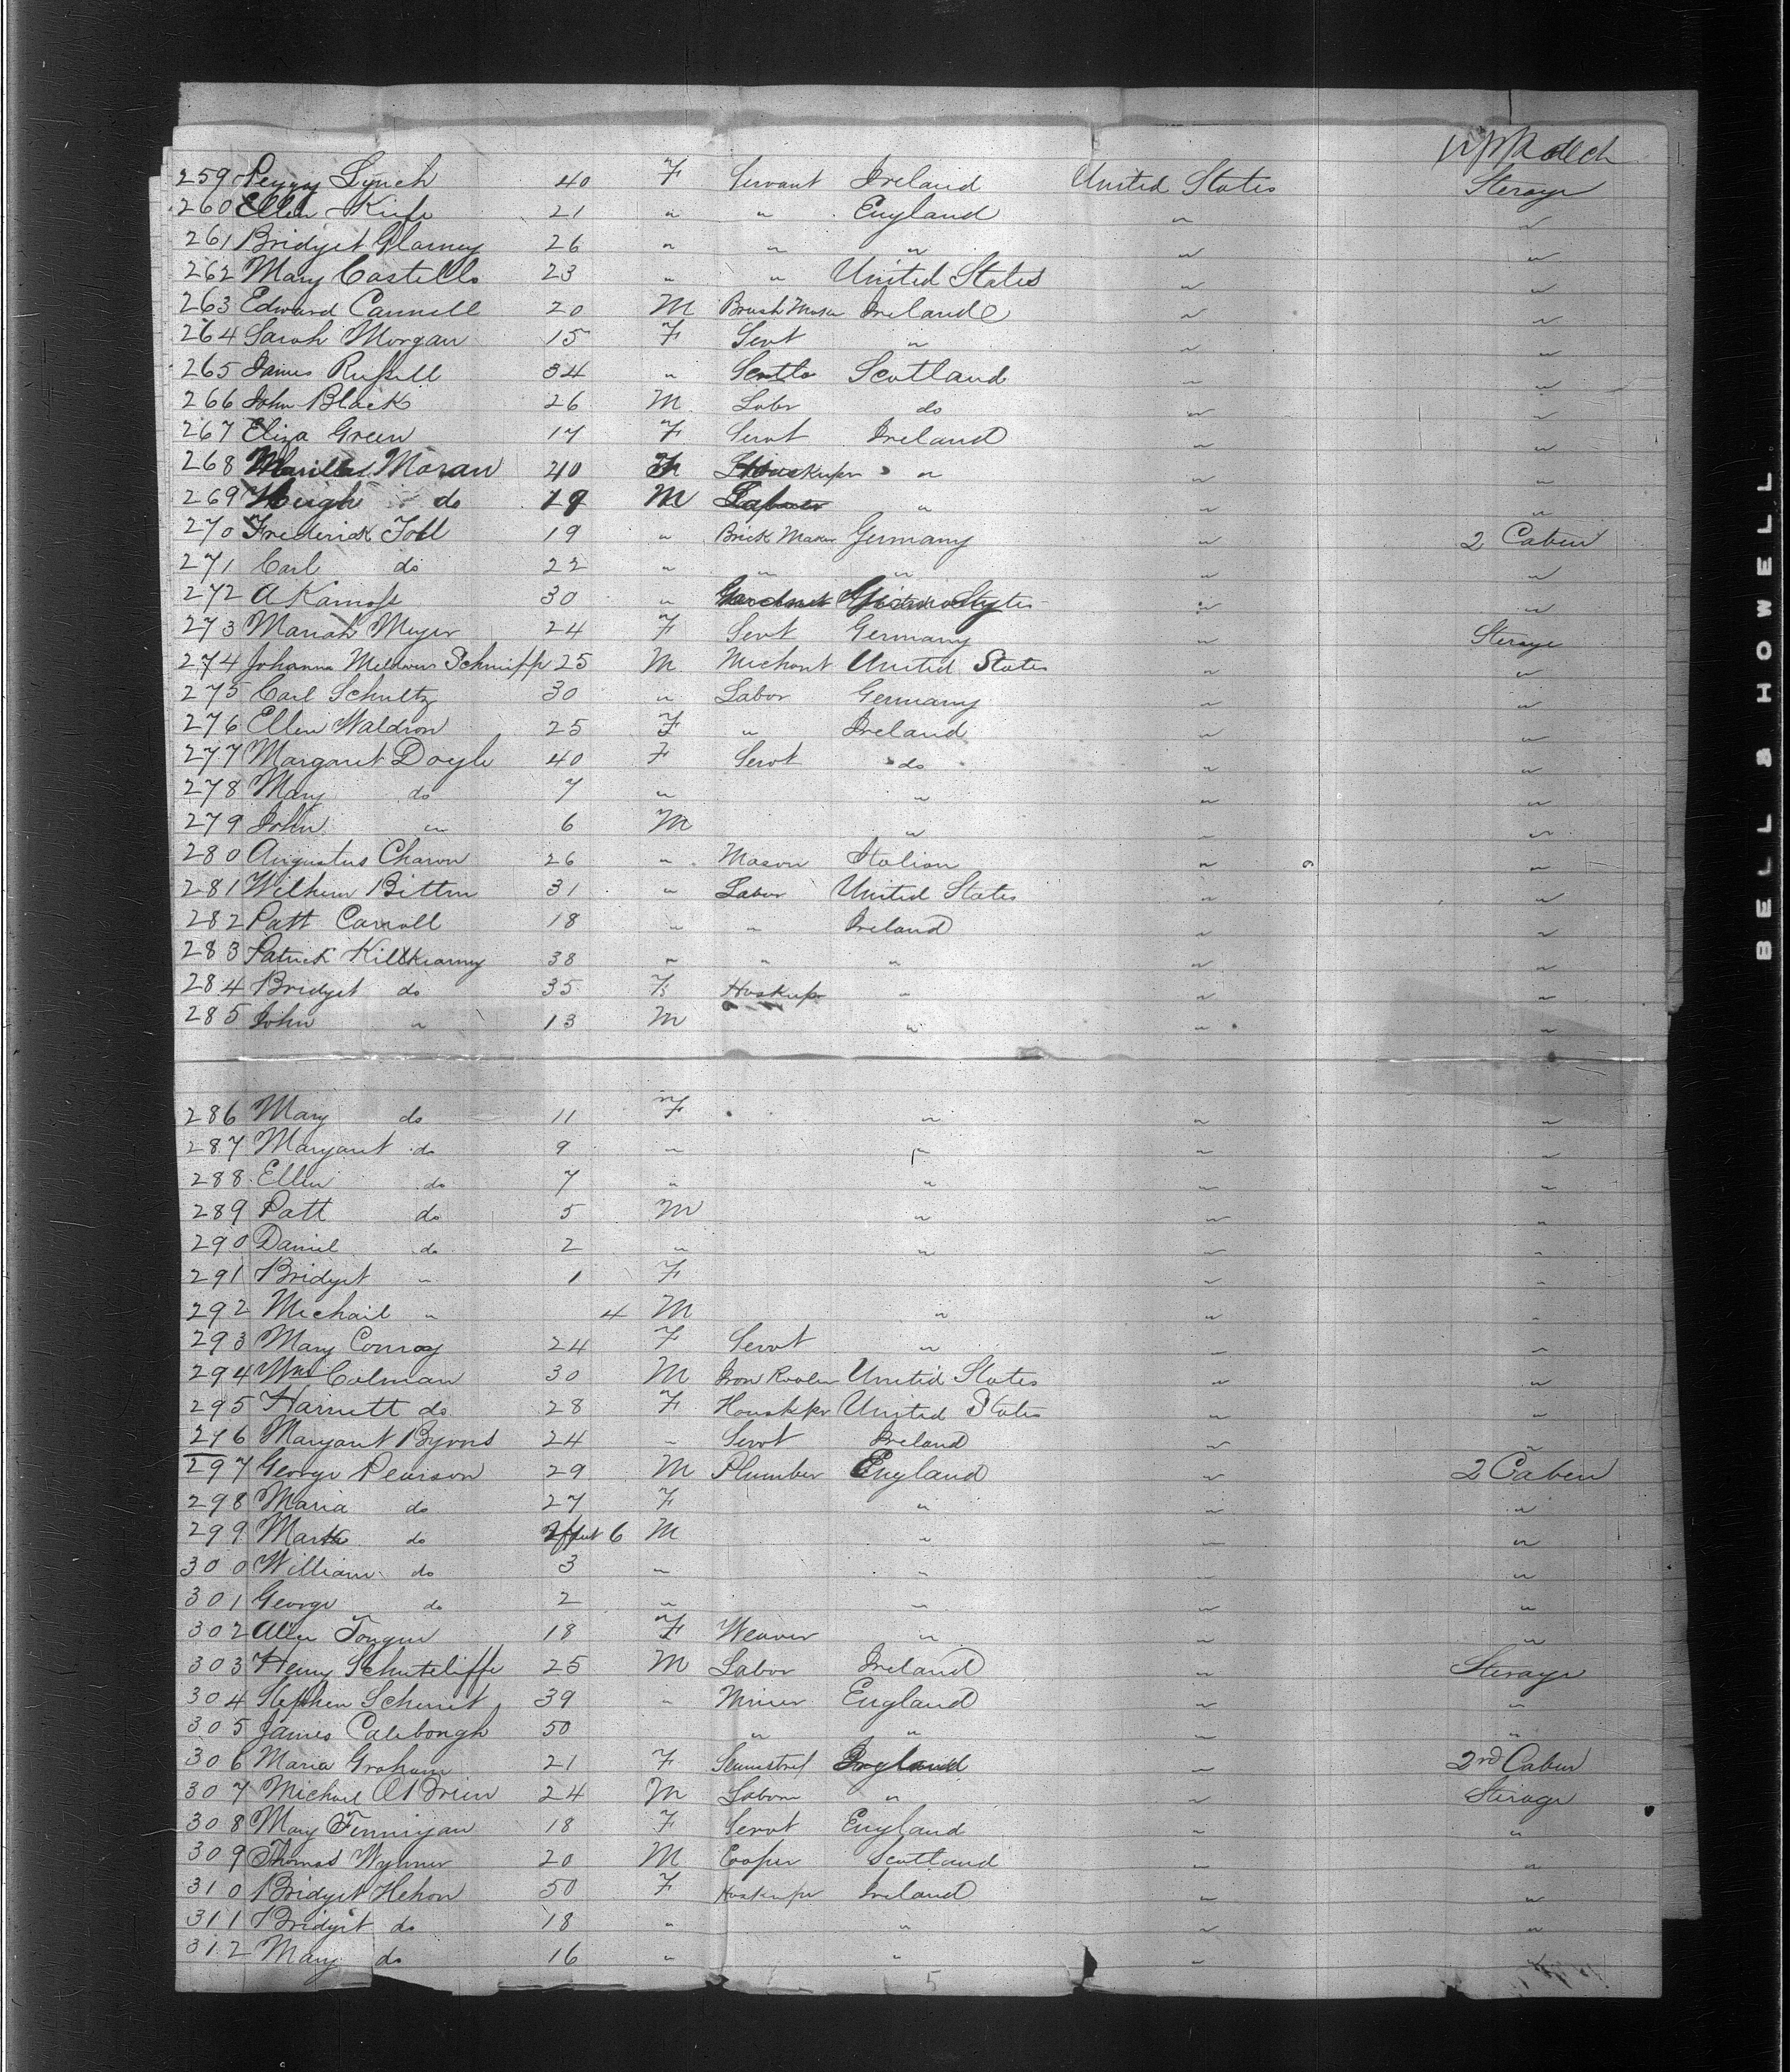 Sterage
259 Peggy Lynch 40 F Servant Ireland United States
260 Ellen Kiefe 21 " " England " "
261 Bridget Glarney 26 " " " " "
262 Mary Costello 23 " " United States " "
263 Edward Cannell 20 M Brush Ireland " "
264 Sarah Morgan 15 F Servt " " "
265 James Russell 34 " Scotland " "
266 John Black 26 M Labr do " "
267 Eliza Green 17 F Servt Ireland " "
268 Moran 40 Houskeper " " "
269 Hugh do 19 M Labourer " " "
270 Frederick Toll 19 " Brick Maker Germany " 2 Caben
271 Carl do 22 " " " " "
272 A 30 " " "
273 Mariah Meyer 24 F Servt Germany " Sterage
274 Johanna 25 M Michant United States " "
275 Carl Schultz 30 " Labor Germany " "
276 Ellen Waldron 25 F " Ireland " "
277 Margaret Doyle 40 F Servt do " "
278 Mary do 7 " " " "
279 John " 6 M " " "
280 Augustus Charon 26 " Mason Italian " "
281 Wilhem Bittm 31 " Labor United States " "
282 Patt Carroll 18 " " Ireland " "
283 Patrick Killkearney 38 " " " " "
284 Bridget do 35 F Huskepr " " "
285 John " 13 M " " "
286 Mary do 11 F " " "
287 Margaret do 9 " " " "
288 Ellen do 7 " " " "
289 Patt do 5 M " " "
290 Daniel do 2 " " " "
291 Bridget " 1 F " "
292 Michail " 4 M " " "
293 Mary Conroy 24 F Servt " " "
294 Wm Colman 30 M Iron United States " "
295 Harriett do 28 F Houskkpr United States " "
296 Margaret Byrns 24 " Servt Ireland " "
297 George Pearson 29 M Plumber England " 2 Caben
298 Maria do 27 F " " "
299 Mark do 6 M " " "
300 William do 3 " " " "
301 George do 2 " " " "
302 18 F Weaver " " "
303 Henry Schutcliffe 25 M Labor Ireland " Sterage
304 Stephen 39 " Miner England " "
305 James Calebough 50 " " " "
306 Maria Graham 21 F England " 2nd Caben
307 Michael O'Brien 24 M Labour " " Sterage
308 Mary Fennigan 18 F Servt England " "
309 Thomas 20 M Cooper Scotland " "
310 Bridget Hehon 50 F Huskeper Ireland " "
311 Bridget do 18 " " " "
312 Mary do 16 " " " "
5
BELL & HOWELL